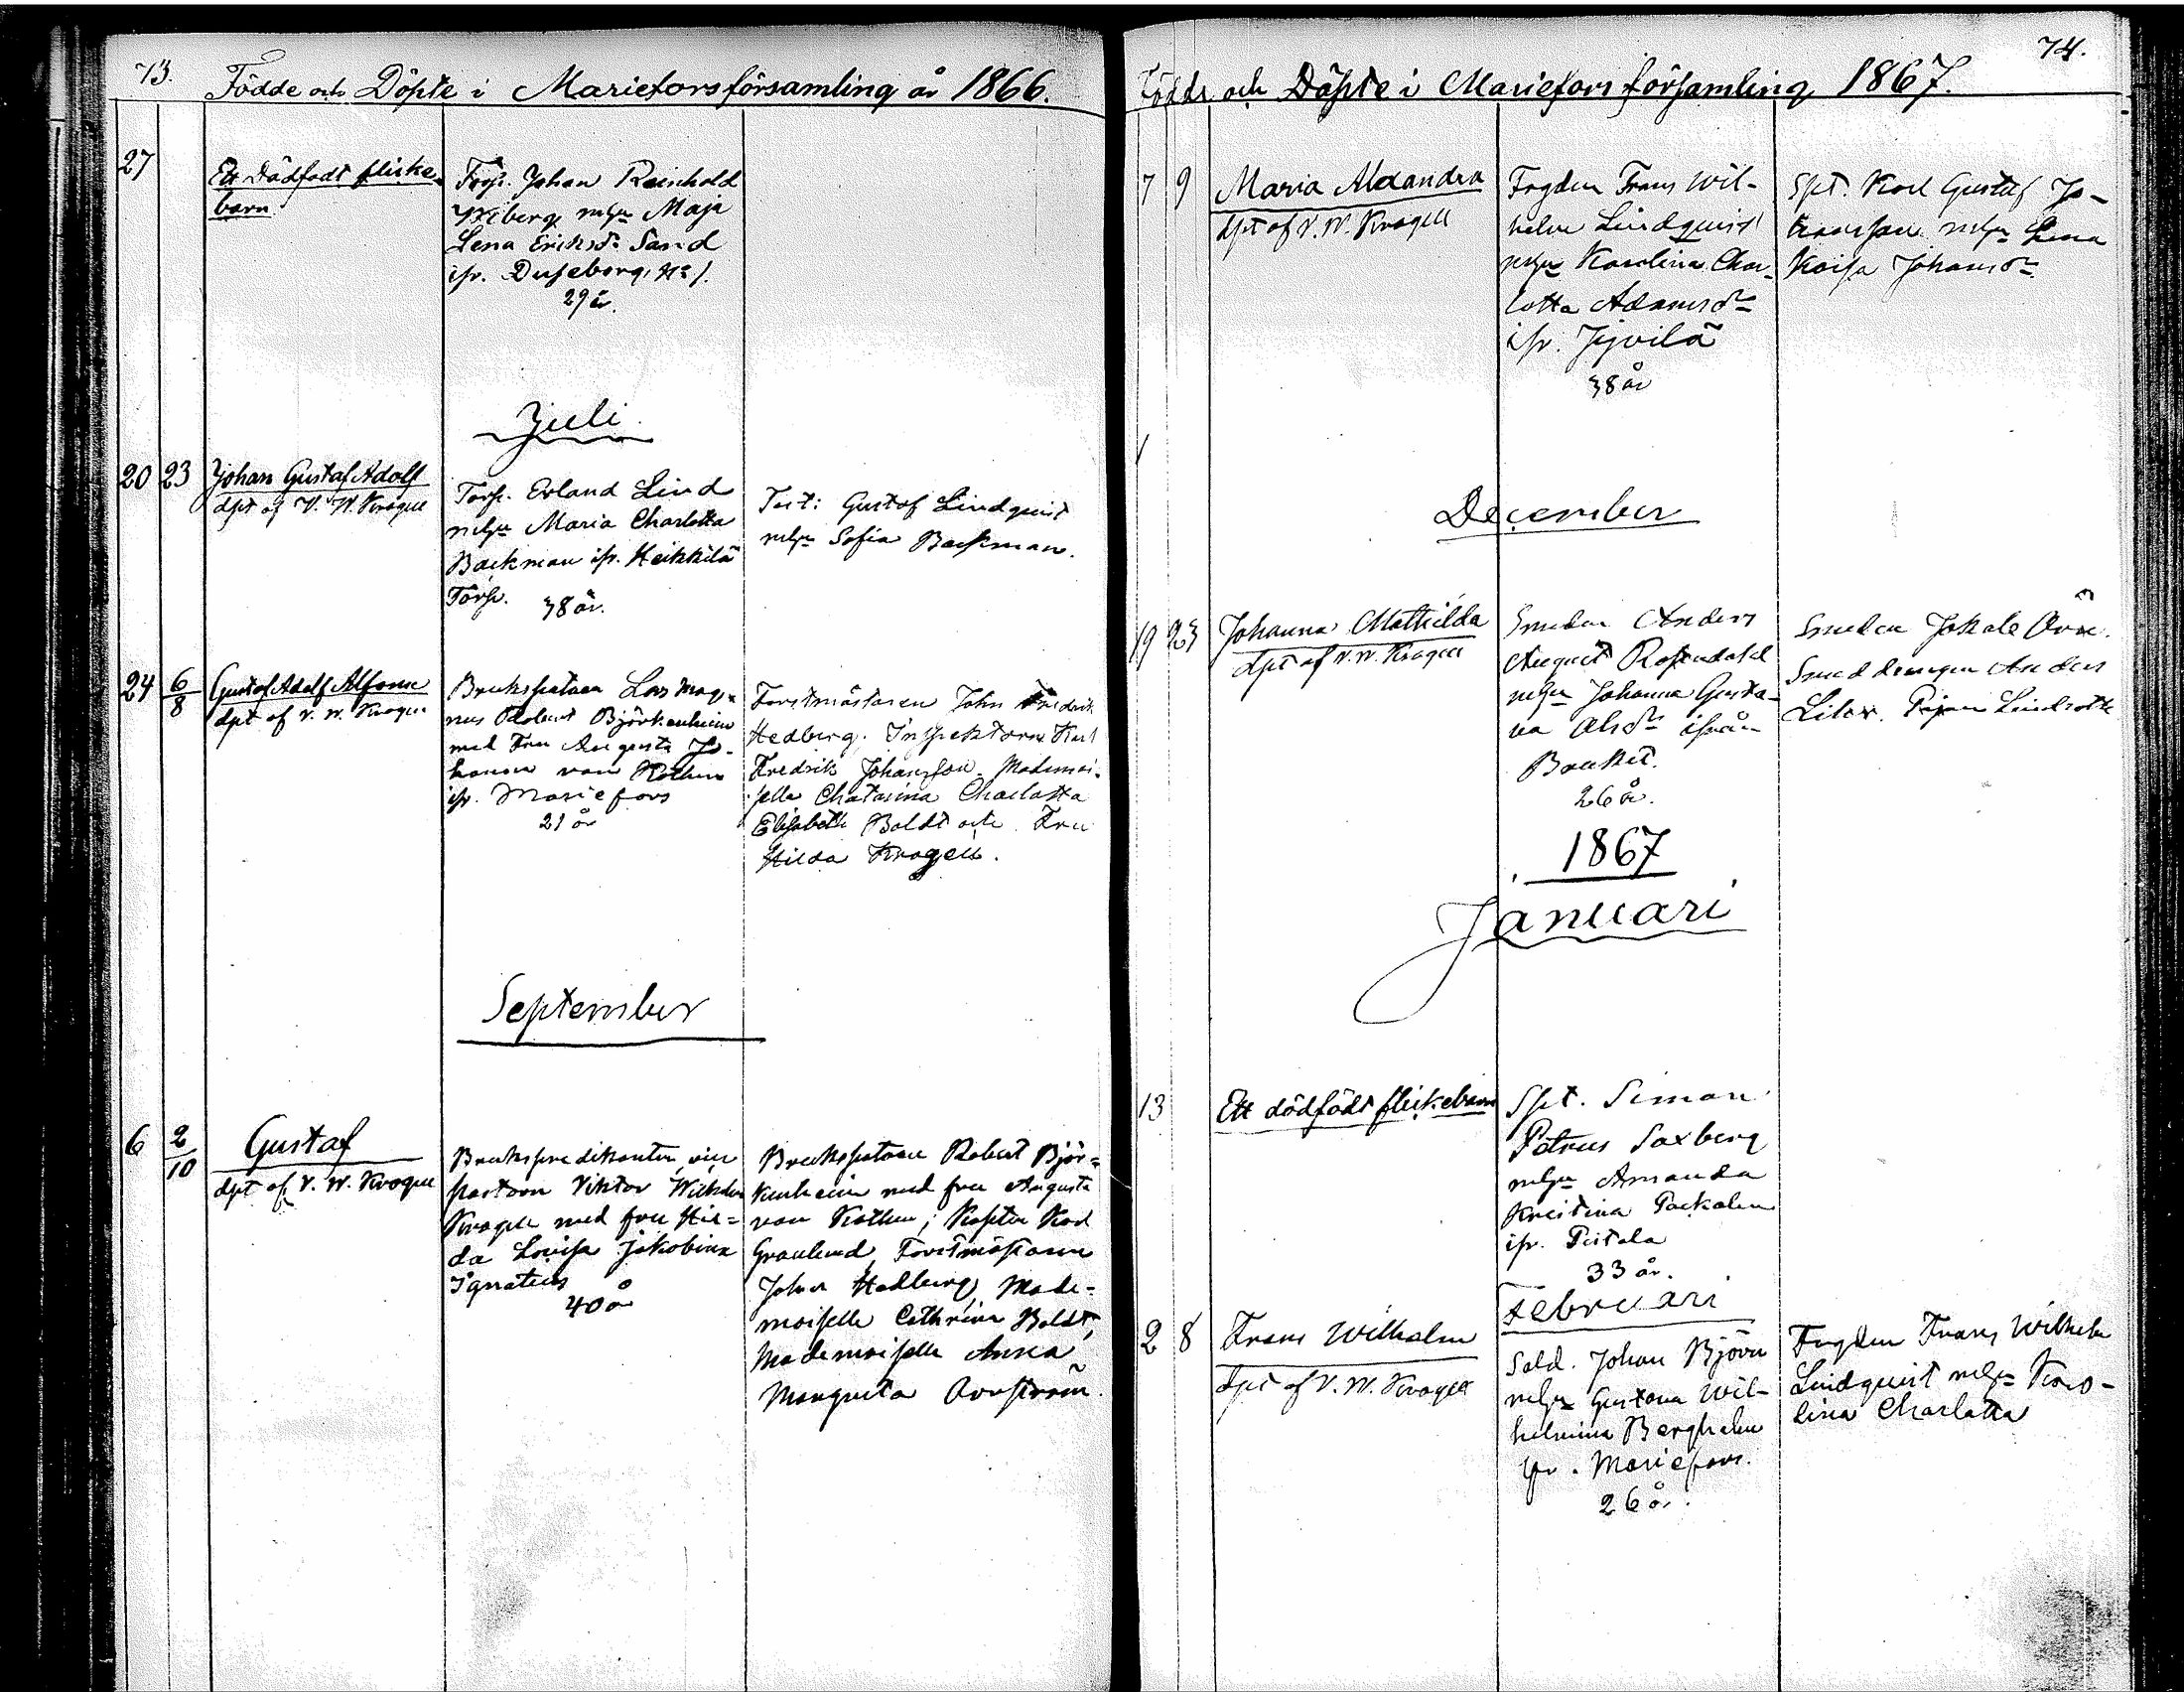 73.
Födde och Döpte i Mariefors församling år 1866.
27
Ett Dödfödt flicke-
barn
Torp. Johan Reinhold
Wiberg mhu Maja
Lena Eriksdr Sand
ifr. Duseborg, No 1.
29 år.
Juli
20 23 Johan Gustaf Adolf
dpt af V. W. Krogell
Torp. Erland Lind
mhu Maria Charlotta
Backman ifr. Heikkilä
Torp. 38 år.
Test: Gustaf Lindquist
mhu Sofia Backman.
24 6/8 Gustaf Adolf Alfons
dpt af V. W. Krogell
Brukspatron Lars Mag-
nus Robert Björkenheim
med Fru Augusta Jo-
hanna von Kothen
ifr. Mariefors
21 år
Forstmästaren John Fredrik
Hedberg. Inspektoren Karl
Fredrik Johansson. Mademoi-
selle Chatarina Charlotta
Elisabeth Boldt och Fru
Hilda Krogell.
September
6 2/10 Gustaf
dpt af V. W. Krogell
Brukspredikanten, vice
pastorn Viktor Wilhelm
Krogell med fru Hil-
da Lovisa Jakobina
Ignatius
40 år
Brukspatron Robert Björ-
kenheim med fru Augusta
von Kothen; Kapten Karl
Granlund, Forstmästaren
John Hedberg, Made-
moiselle Cathrina Boldt,
Mademoiselle Anna
Margreta Avnström.
74.
Födde och Döpte i Mariefors församling 1867.
7 9 Maria Alexandra
dpt af V. W. Krogell
Fogden Frans Wil-
helm Lindquist
mhu Karolina Char-
lotta Adamsdr
ifr. Jijvilä
38 år
Spt. Karl Gustaf Jo-
hansson mhu Lena
Kaisa Johansdr
December
19 23 Johanna Mathilda
dpt af V. W. Krogell
Smeden Anders
August Rosendahl
mhu Johanna Gusta-
va Alsdr ifrån
Bruket.
26 år.
Smeden
Smeddrängen Anders
Liler. Pigan Lindroth
1867
Januari
13 Ett dödfödt flickebarn
Spt. Simon
Petrus Saxberg
mhu Amanda
Kristina Packalen
ifr. Piitala
33 år.
Februari
2 8 Frans Wilhelm
dpt af V. W. Krogell
Sold. Johan Björn
mhu Gustava Wil-
helmina Bergholm
ifr. Mariefors.
26 år.
Fogden Frans Wilhelm
Lindquist mhu Karo-
lina Charlotta